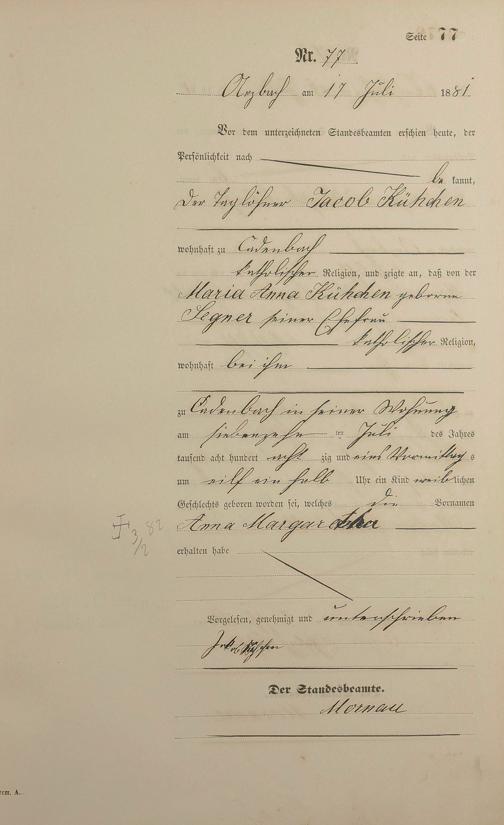 Seite 77
Nr. 77
Arzbach am 17 Juli 1881
Vor dem unterzeichneten Standesbeamten erschien heute, der
Persönlichkeit nach
be kannt,
der Taglöhner Jacob Kühchen
wohnhaft zu Cadenbach
katholischer Religion, und zeigte an, daß von der
Maria Anna Kühchen geborne
Segner seiner Ehefrau
katholischer Religion,
wohnhaft bei ihm
zu Cadenbach in seiner Wohnung
am siebenzehn ten Juli des Jahres
tausend acht hundert acht zig und eins Vormittag s
um eilf ein halb Uhr ein Kind weib lichen
Geschlechts geboren worden sei, welches die Vornamen
Anna Margaretha
† 3/2 82
erhalten habe
Vorgelesen, genehmigt und unterschrieben
Jakob Kühchen
Der Standesbeamte.
Mornau
rm. A.